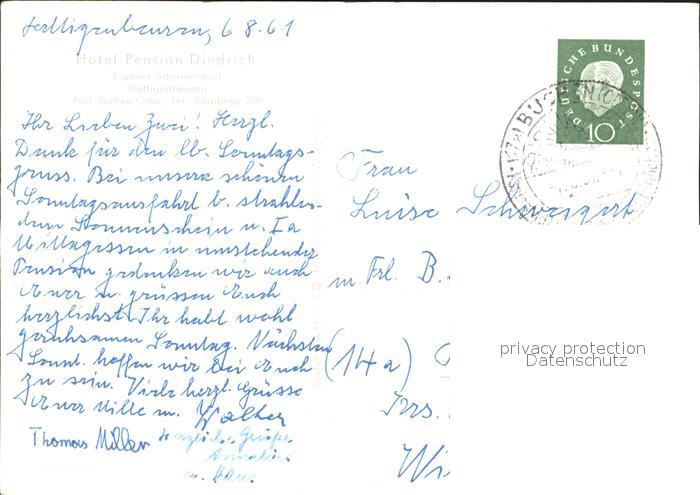 Hettigenbeuren, 6 8.61
Hotel-Pension Diedrich
Eigenes Schwimmbad
Hettigenbeuern
Post Buchen Odw., Tel. Rippberg 226
Ihr Lieben Zwei! Herzl.
Dank für den lb. Sonntags-
gruss. Bei unsere schönen
Sonntagsausfahrt b. strahlen-
dem Sonnenschein u. Ia
Mittagessen in umstehender
Pension gedenken wir auch
Euer u. grüssen Euch
herzlichst. Ihr habt wohl
geruhsamen Sonntag. Nächsten
Sonnt. hoffen wir bei Euch
zu sein. Viele herzl. Grüsse
Euer Wille u. Walter
Thomas Miller
herzliche Grüße
u. Klaus
DEUTSCHE BUNDESPOST
10
BUCHEN
Frau
Luise Schweigert
m. Frl. B.
(14a)
Wi
privacy protection
Datenschutz